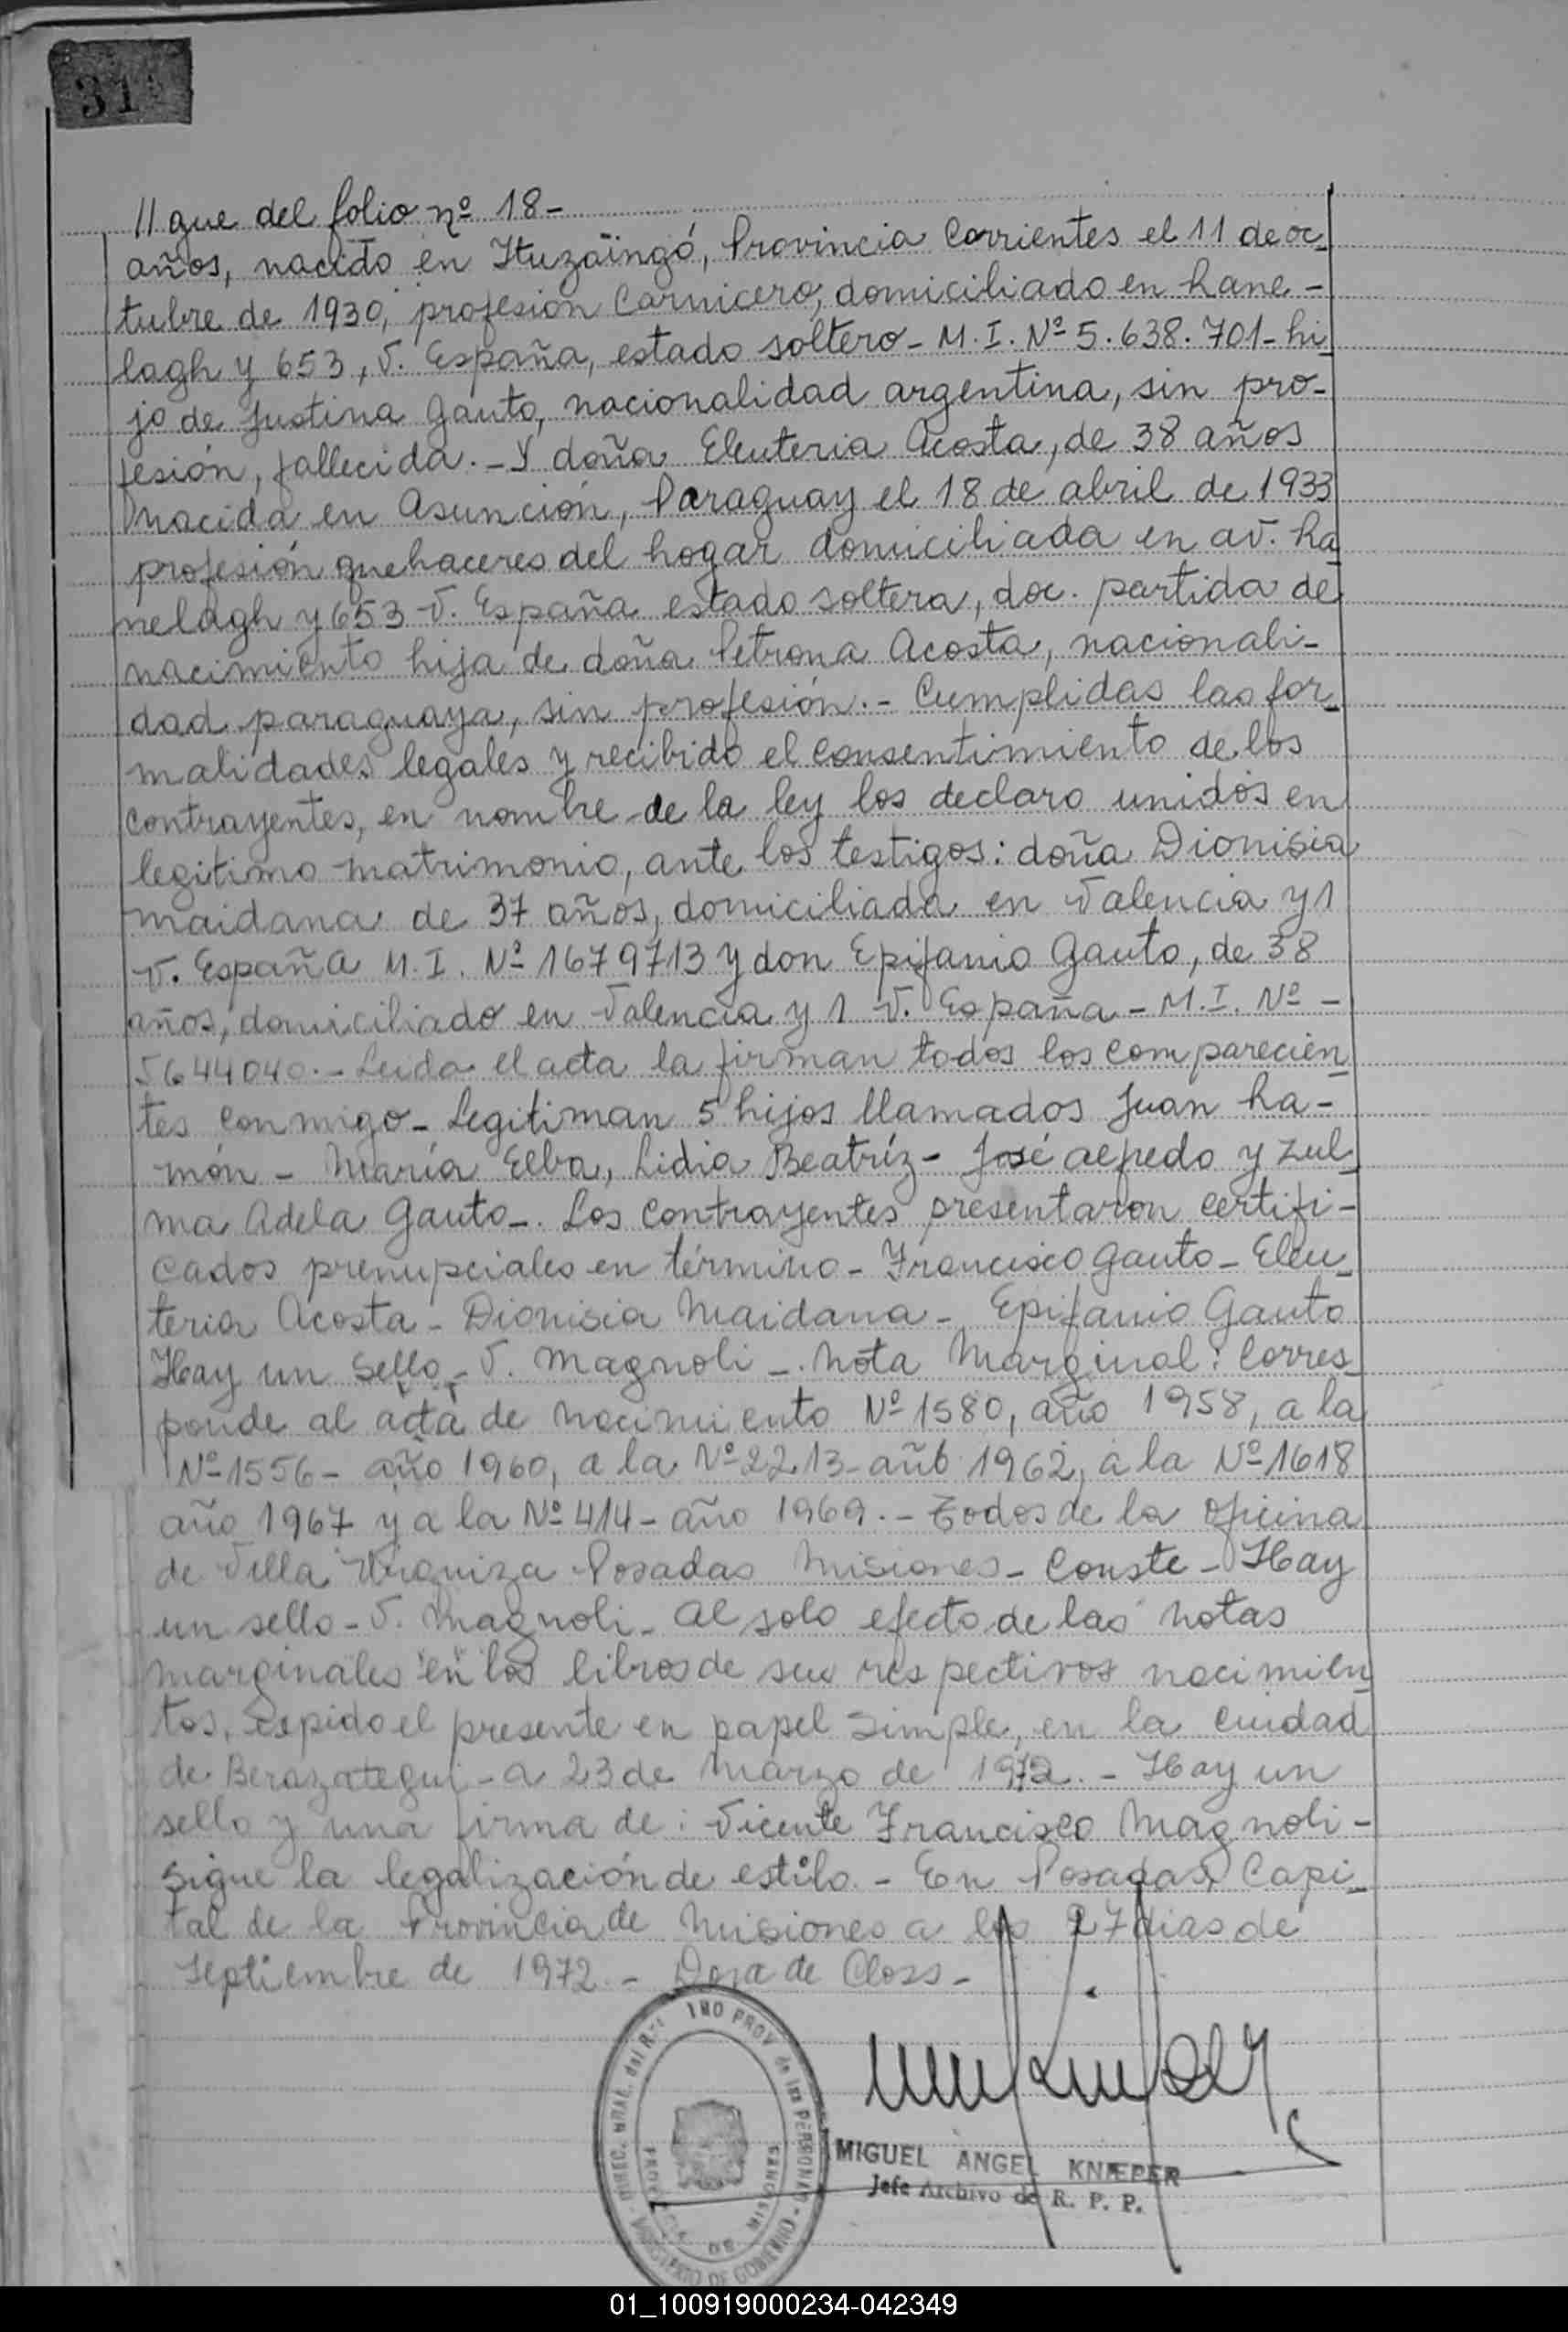 31
//gue del folio nº 18-
años, nacido en Ituzaingó, Provincia Corrientes el 11 de oc_
tubre de 1930, profesión Carnicero, domiciliado en Rane-
lagh y 653, V. España, estado soltero- M. I. Nº 5.638.701- hi_
jo de Justina Gauto, nacionalidad argentina, sin pro-
fesión, fallecida.- Y doña Eleuteria Acosta, de 38 años
nacida en Asunción, Paraguay el 18 de abril de 1933
profesión quehaceres del hogar domiciliada en av. Ra_
nelagh y 653 V. España estado soltera, doc. partida de
nacimiento hija de doña Petrona Acosta, nacionali-
dad paraguaya, sin profesión.- Cumplidas las for_
malidades legales y recibido el consentimiento de los
contrayentes, en nombre de la ley los declaro unidos en
legitimo matrimonio, ante los testigos: doña Dionisia
maidana de 37 años, domiciliada en Valencia y 1
V. España M. I. Nº 1679713 y don Epifanio Gauto, de 38
años, domiciliado en Valencia y 1 V. España - M.I. Nº -
5644040.- Leida el acta la firman todos los comparecien_
tes conmigo- Legitiman 5 hijos llamados Juan Ra-
món - María Elba, Lidia Beatríz- José alfredo y Zul_
ma Adela Gauto-. Los contrayentes presentaron certifi-
cados prenupciales en término- Francisco Gauto- Eleu_
teria Acosta - Dionisia Maidana - Epifanio Gauto
Hay un Sello- V. Magnoli -. Nota Marginal: Corres_
ponde al acta de nacimiento Nº 1580, año 1958, a la
Nº 1556- año 1960, a la Nº 2213- año 1962, a la Nº 1618
año 1967 y a la Nº 414- año 1969.- Todos de la oficina
de Villa Urquiza Posadas Misiones- Conste- Hay
un sello- V. Magnoli- al solo efecto de las notas
marginales "en" los libros de sus respectivos nacimien_
tos, expido el presente en papel simple, en la ciudad
de Berazategui- a 23 de Marzo de 1972.- Hay un
sello y una firma de: Vicente Francisco Magnoli-
sigue la legalización de estilo.- En Posadas, Capi_
tal de la Provincia de Misiones a los 27 dias de
Septiembre de 1972.- Dora de Closs-
MIGUEL ANGEL KNÆPER
Jefe Archivo de R. P. P.
01_100919000234-042349